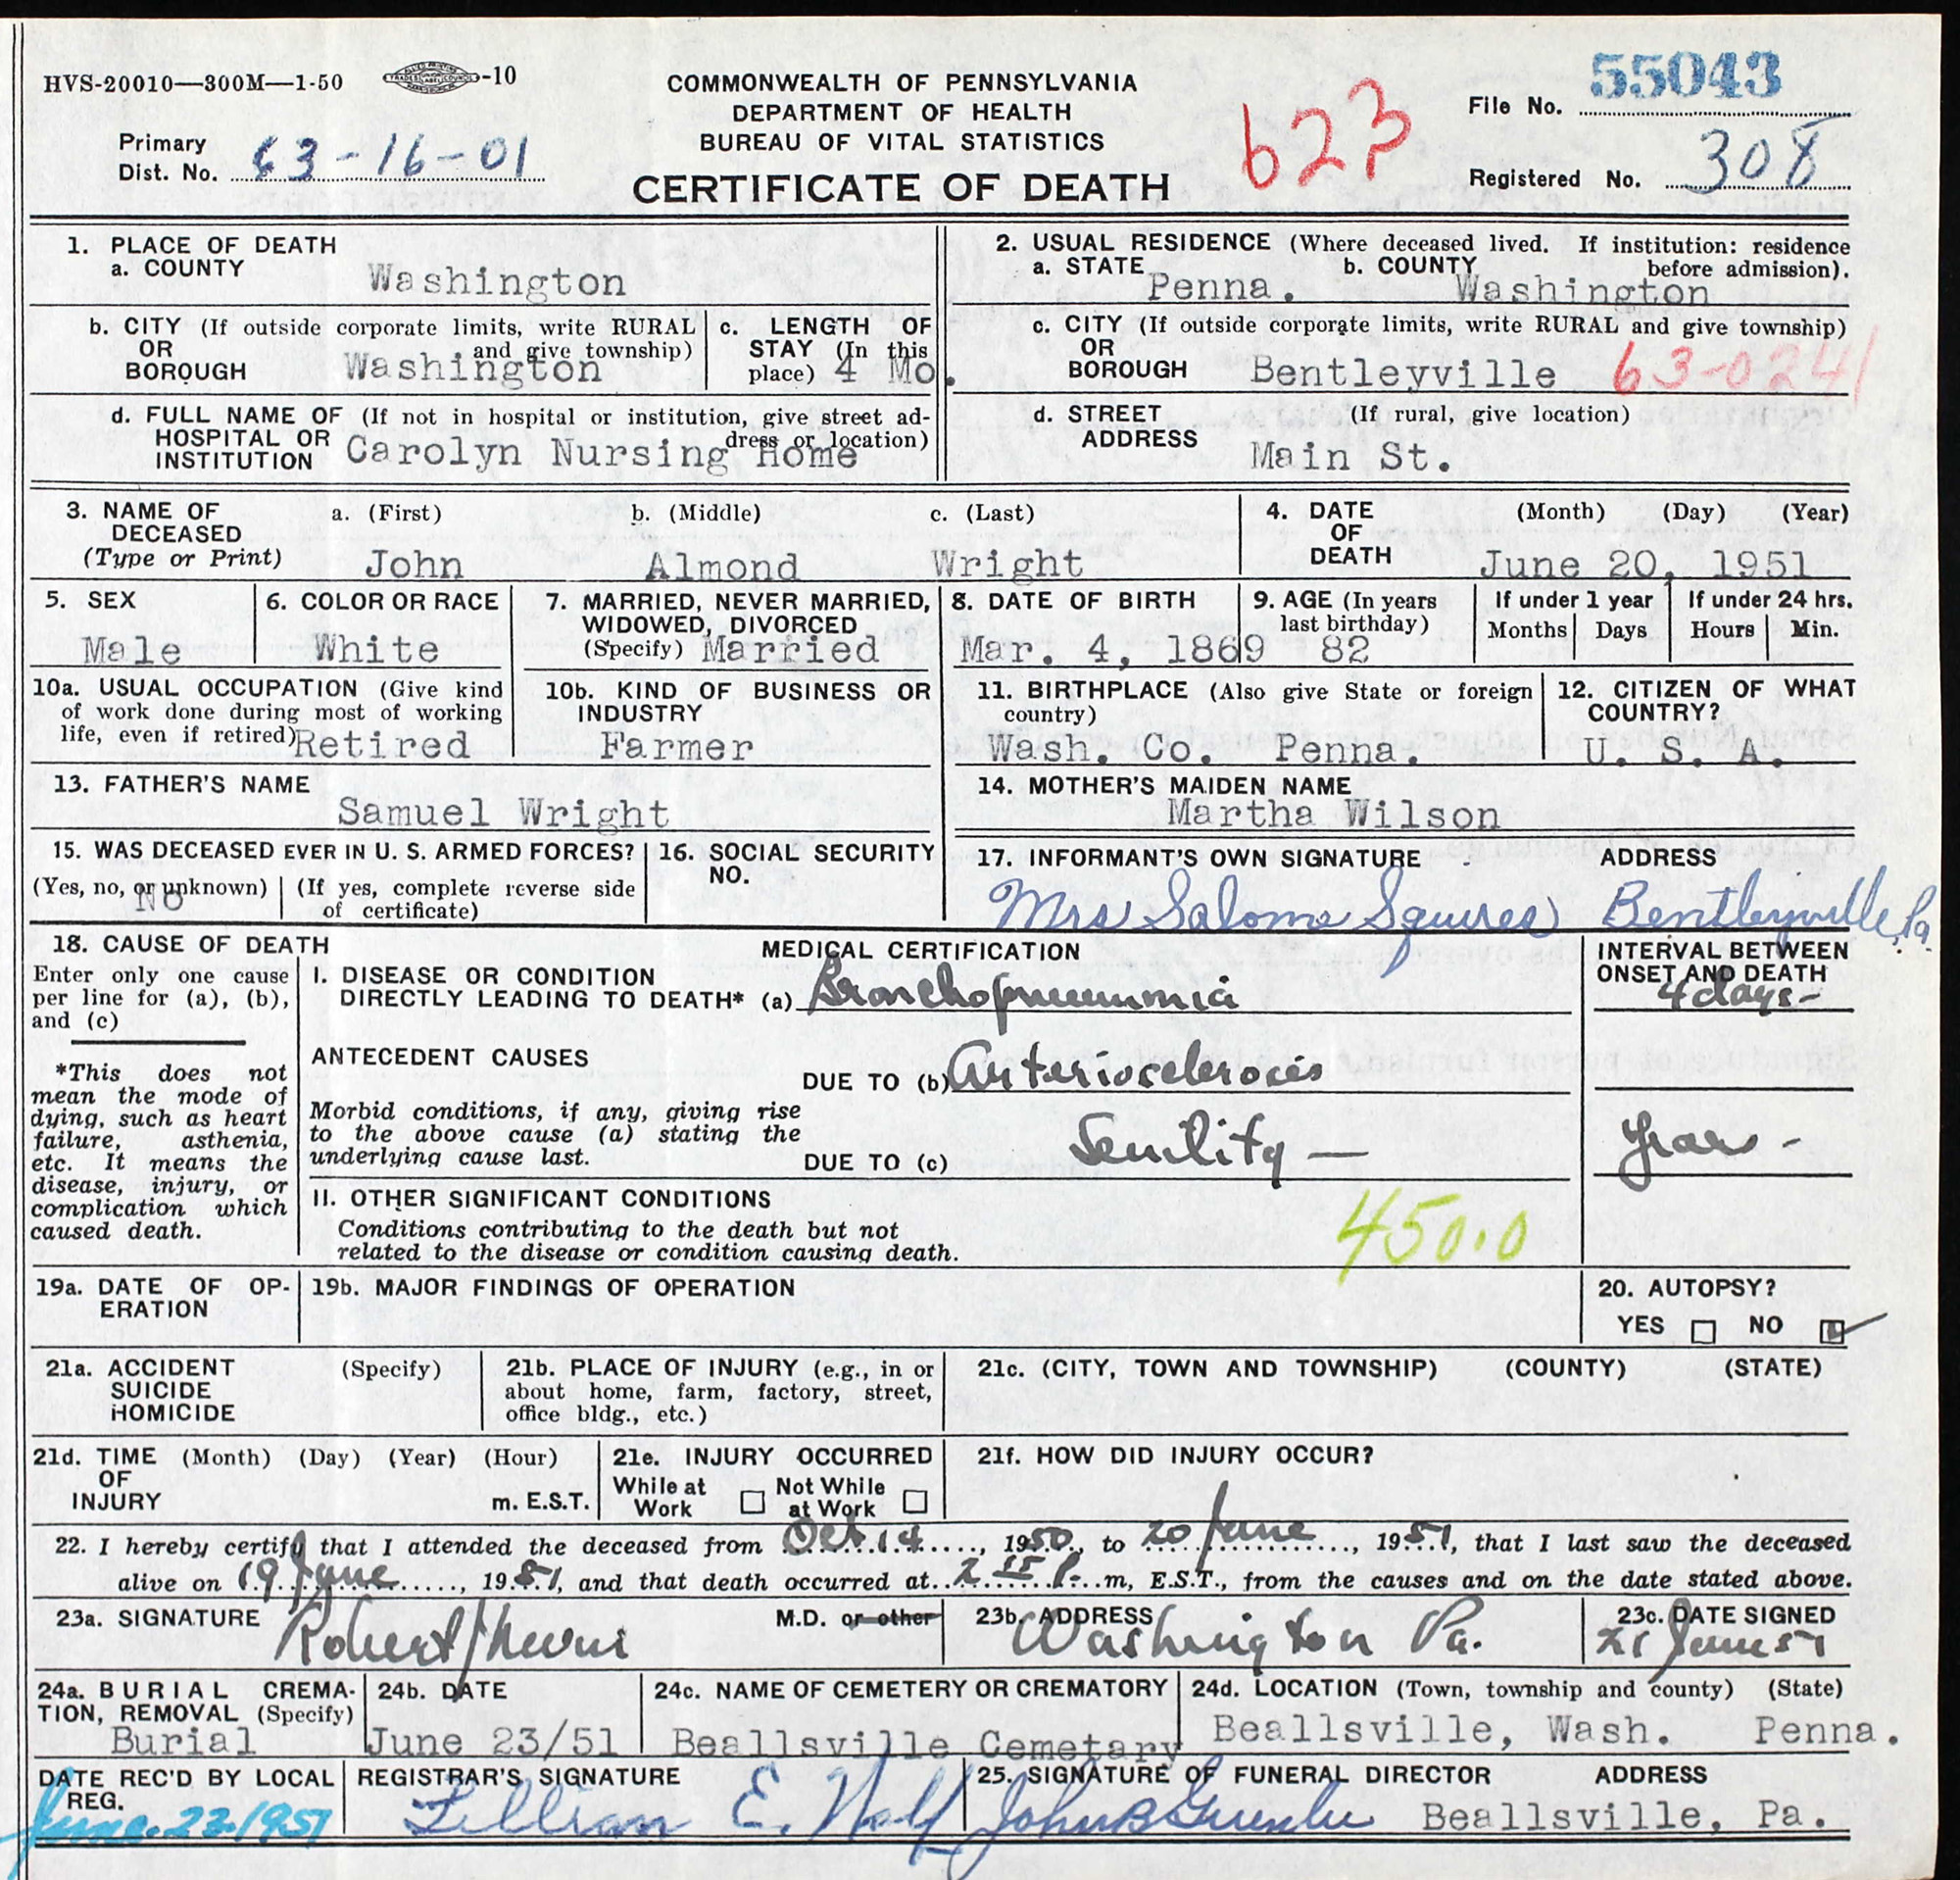 HVS-20010—300M—1-50 -10
COMMONWEALTH OF PENNSYLVANIA
DEPARTMENT OF HEALTH
BUREAU OF VITAL STATISTICS
CERTIFICATE OF DEATH
Primary
Dist. No. 63-16-01
623
File No. 55043
Registered No. 308
1. PLACE OF DEATH
a. COUNTY Washington
2. USUAL RESIDENCE (Where deceased lived. If institution: residence
before admission).
a. STATE Penna. b. COUNTY Washington
b. CITY (If outside corporate limits, write RURAL
OR and give township)
BOROUGH Washington
c. LENGTH OF
STAY (In this
place) 4 Mo.
c. CITY (If outside corporate limits, write RURAL and give township)
OR
BOROUGH Bentleyville 63-0241
d. FULL NAME OF (If not in hospital or institution, give street ad-
HOSPITAL OR dress or location)
INSTITUTION Carolyn Nursing Home
d. STREET (If rural, give location)
ADDRESS Main St.
3. NAME OF a. (First) b. (Middle) c. (Last)
DECEASED
(Type or Print) John Almond Wright
4. DATE (Month) (Day) (Year)
OF
DEATH June 20, 1951
5. SEX
Male
6. COLOR OR RACE
White
7. MARRIED, NEVER MARRIED,
WIDOWED, DIVORCED
(Specify) Married
8. DATE OF BIRTH
Mar. 4, 1869
9. AGE (In years
last birthday)
82
If under 1 year
Months Days
If under 24 hrs.
Hours Min.
10a. USUAL OCCUPATION (Give kind
of work done during most of working
life, even if retired) Retired
10b. KIND OF BUSINESS OR
INDUSTRY
Farmer
11. BIRTHPLACE (Also give State or foreign
country)
Wash. Co. Penna.
12. CITIZEN OF WHAT
COUNTRY?
U. S. A.
13. FATHER'S NAME
Samuel Wright
14. MOTHER'S MAIDEN NAME
Martha Wilson
15. WAS DECEASED EVER IN U. S. ARMED FORCES?
(Yes, no, or unknown) (If yes, complete reverse side
No of certificate)
16. SOCIAL SECURITY
NO.
17. INFORMANT'S OWN SIGNATURE ADDRESS
Mrs Salome Squires Bentleyville, Pa.
18. CAUSE OF DEATH
Enter only one cause
per line for (a), (b),
and (c)
*This does not
mean the mode of
dying, such as heart
failure, asthenia,
etc. It means the
disease, injury, or
complication which
caused death.
MEDICAL CERTIFICATION
I. DISEASE OR CONDITION
DIRECTLY LEADING TO DEATH* (a) Bronchopneumonia
ANTECEDENT CAUSES
DUE TO (b) Arteriosclerosis
Morbid conditions, if any, giving rise
to the above cause (a) stating the
underlying cause last.
DUE TO (c) Senility —
II. OTHER SIGNIFICANT CONDITIONS
Conditions contributing to the death but not
related to the disease or condition causing death.
450.0
INTERVAL BETWEEN
ONSET AND DEATH
4 days -
19a. DATE OF OP-
ERATION
19b. MAJOR FINDINGS OF OPERATION
20. AUTOPSY?
YES NO
21a. ACCIDENT (Specify)
SUICIDE
HOMICIDE
21b. PLACE OF INJURY (e.g., in or
about home, farm, factory, street,
office bldg., etc.)
21c. (CITY, TOWN AND TOWNSHIP) (COUNTY) (STATE)
21d. TIME (Month) (Day) (Year) (Hour)
OF
INJURY m. E.S.T.
21e. INJURY OCCURRED
While at Not While
Work at Work
21f. HOW DID INJURY OCCUR?
22. I hereby certify that I attended the deceased from Oct 14, 1950, to 20 June, 1951, that I last saw the deceased
alive on 19 June, 1951, and that death occurred at 2 15 P.m, E.S.T., from the causes and on the date stated above.
23a. SIGNATURE M.D. or other
Robert
23b. ADDRESS
Washington Pa.
23c. DATE SIGNED
21 June 51
24a. BURIAL CREMA-
TION, REMOVAL (Specify)
Burial
24b. DATE
June 23/51
24c. NAME OF CEMETERY OR CREMATORY
Beallsville Cemetary
24d. LOCATION (Town, township and county) (State)
Beallsville, Wash. Penna.
DATE REC'D BY LOCAL
REG.
June. 22. 1951
REGISTRAR'S SIGNATURE
Lillian E.
25. SIGNATURE OF FUNERAL DIRECTOR ADDRESS
John B Beallsville, Pa.